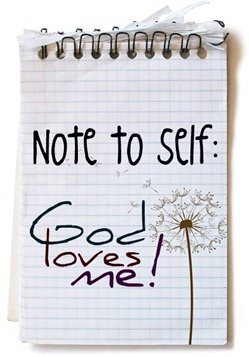 Note to self:
God
loves
me!